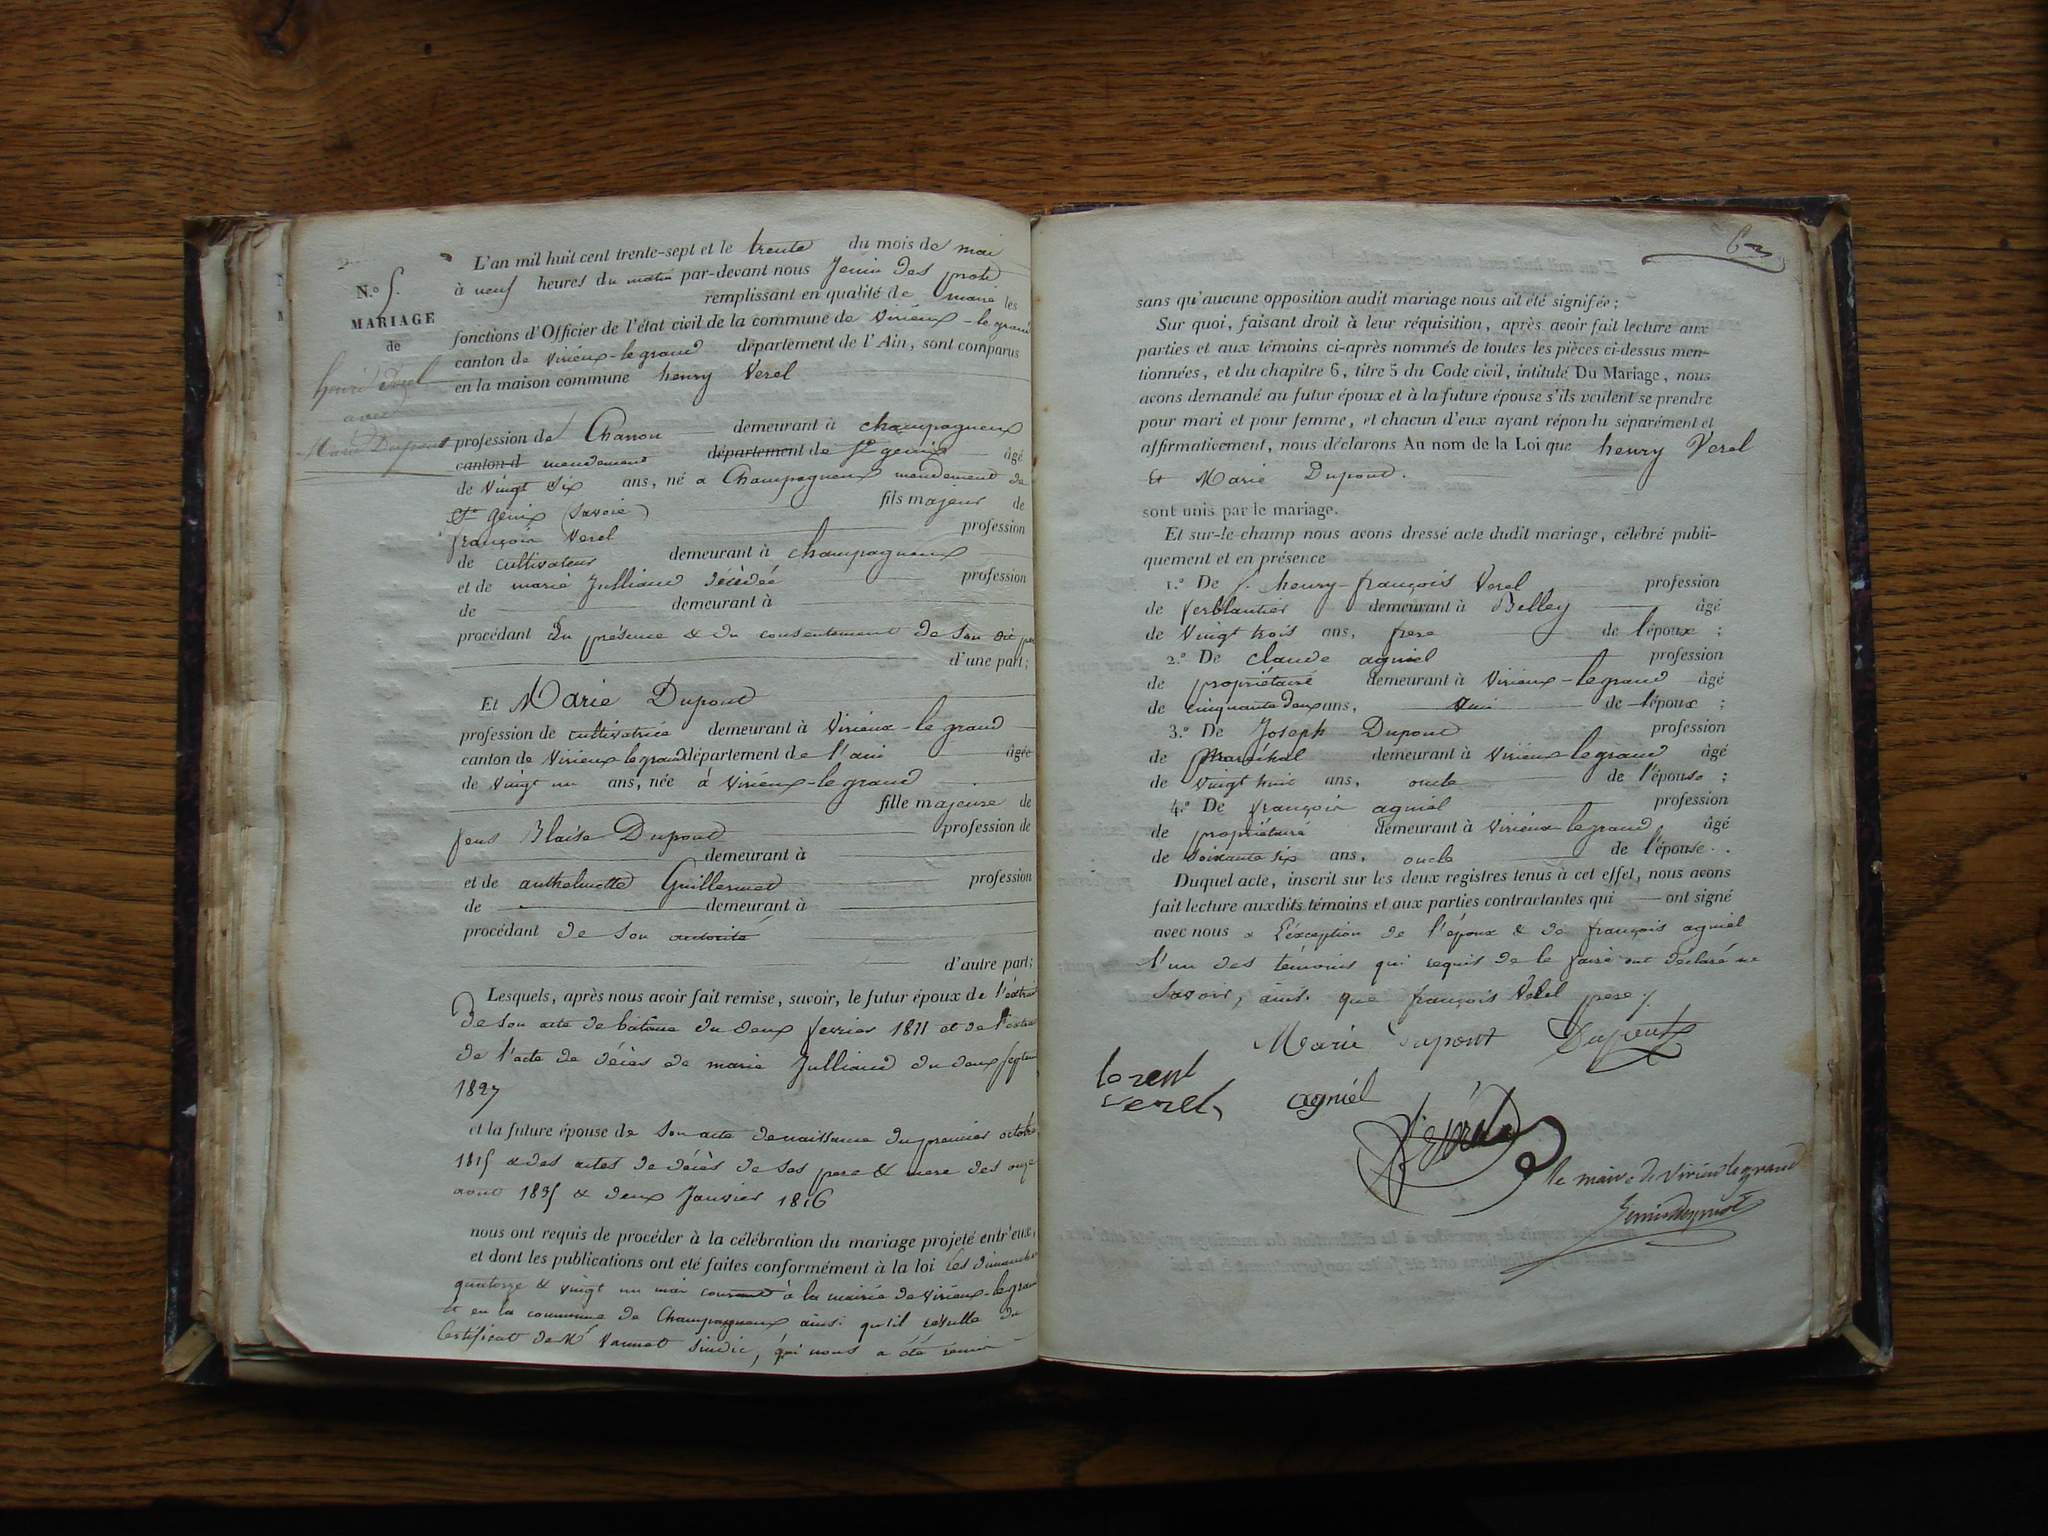 N.º 5.
MARIAGE
de
henri Verel
avec
Marie Dupont
L'an mil huit cent trente-sept et le trente du mois de mai
à neuf heures du matin par-devant nous Jenin des prots
remplissant en qualité de maire les
fonctions d'Officier de l'état civil de la commune de Virieux-le grand
canton de Virieux-le grand département de l'Ain, sont comparus
en la maison commune henry Verel
profession de Charron demeurant à champagneux
canton d mendement département de St genix âgé
de vingt six ans, né a Champagneux mendement de
St genix (Savoie) fils majeur de
françois Verel profession
de cultivateur demeurant à champagneux
et de marie Julliand décédée profession
de demeurant à
procédant En présence & du consentement de son dit pere
d'une part;
Et Marie Dupont
profession de cultivatrice demeurant à Virieux-le grand
canton de Virieux le grand département de l'ain âgée
de vingt un ans, née à Virieux-le grand
fille majeure de
feus Blaise Dupont profession de
demeurant à
et de anthelmette Guillermet profession
de demeurant à
procédant de son autorité
d'autre part;
Lesquels, après nous avoir fait remise, savoir, le futur époux de l'extrait
de son acte de batême du deux fevrier 1811 et de l'extrait
de l'acte de décès de marie Julliand du deux septembre
1827
et la future épouse de son acte de naissance du premier octobre
1815 & des actes de décès de ses pere & mere des onze
aout 1835 & deux Janvier 1816
nous ont requis de procéder à la célébration du mariage projeté entr'eux,
et dont les publications ont été faites conformément à la loi les dimanches
quatorze & vingt un mai courant à la mairie de Virieux-le grand
et en la commune de Champagneux ainsi qu'il résulte du
Certificat de Mr Vannet sindic, qui nous a été remis
6
sans qu'aucune opposition audit mariage nous ait été signifée;
Sur quoi, faisant droit à leur réquisition, après avoir fait lecture aux
parties et aux témoins ci-après nommés de toutes les pièces ci-dessus men-
tionnées, et du chapitre 6, titre 5 du Code civil, intitulé Du Mariage, nous
avons demandé au futur époux et à la future épouse s'ils veulent se prendre
pour mari et pour femme, et chacun d'eux ayant répondu séparément et
affirmativement, nous déclarons Au nom de la Loi que henry Verel
Et Marie Dupont.
sont unis par le mariage.
Et sur-le-champ nous avons dressé acte dudit mariage, célébré publi-
quement et en présence
1.º De henry-françois Verel profession
de ferblantier demeurant à Belley âgé
de vingt trois ans, frere de l'époux ;
2.º De claude agniel profession
de propriétaire demeurant à Virieux-le grand âgé
de cinquante deux ans, ami de l'époux ;
3.º De Joseph Dupont profession
de Maréchal demeurant à Virieux-le grand âgé
de vingt huit ans, oncle de l'épouse ;
4.º De françois agniel profession
de propriétaire demeurant à Virieux-le grand âgé
de soixante six ans, oncle de l'épouse.
Duquel acte, inscrit sur les deux registres tenus à cet effet, nous avons
fait lecture auxdits témoins et aux parties contractantes qui ont signé
avec nous a L'éxception de l'époux & de françois agniel
l'un des témoins qui requis de le faire ont déclaré ne
savoir, ainsi que françois Verel pere
Marie Dupont Dupont
Verel agniel
le maire de Virieu le grand